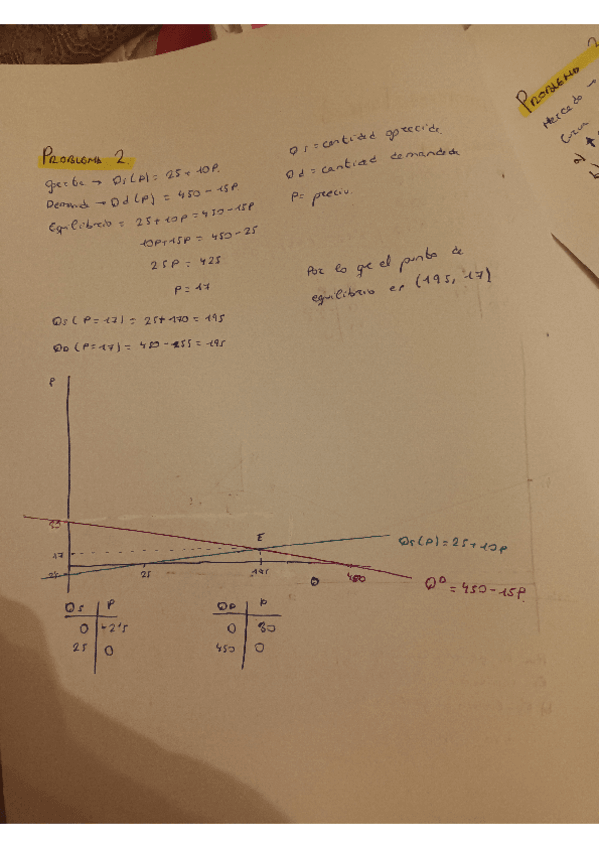 PROBLEMA 2.
Oferta → Qs(P) = 25 + 10P.
Demanda → Qd(P) = 450 - 15P
Equilibrio = 25 + 10P = 450 - 15P
10P + 15P = 450 - 25
25P = 425
P = 17
Qs(P=17) = 25 + 170 = 195
QD(P=17) = 450 - 255 = 195
Qs = cantidad ofrecida.
Qd = cantidad demandada
P = precio.
Por lo que el punto de
equilibrio es (195, 17)
P
30
17
E
25
195
450
Q
Qs(P) = 25 + 10P
QD = 450 - 15P.
Qs P
0 -2'5
25 0
QD P
0 30
450 0
PROBLEMA
Mercado →
a)
b)